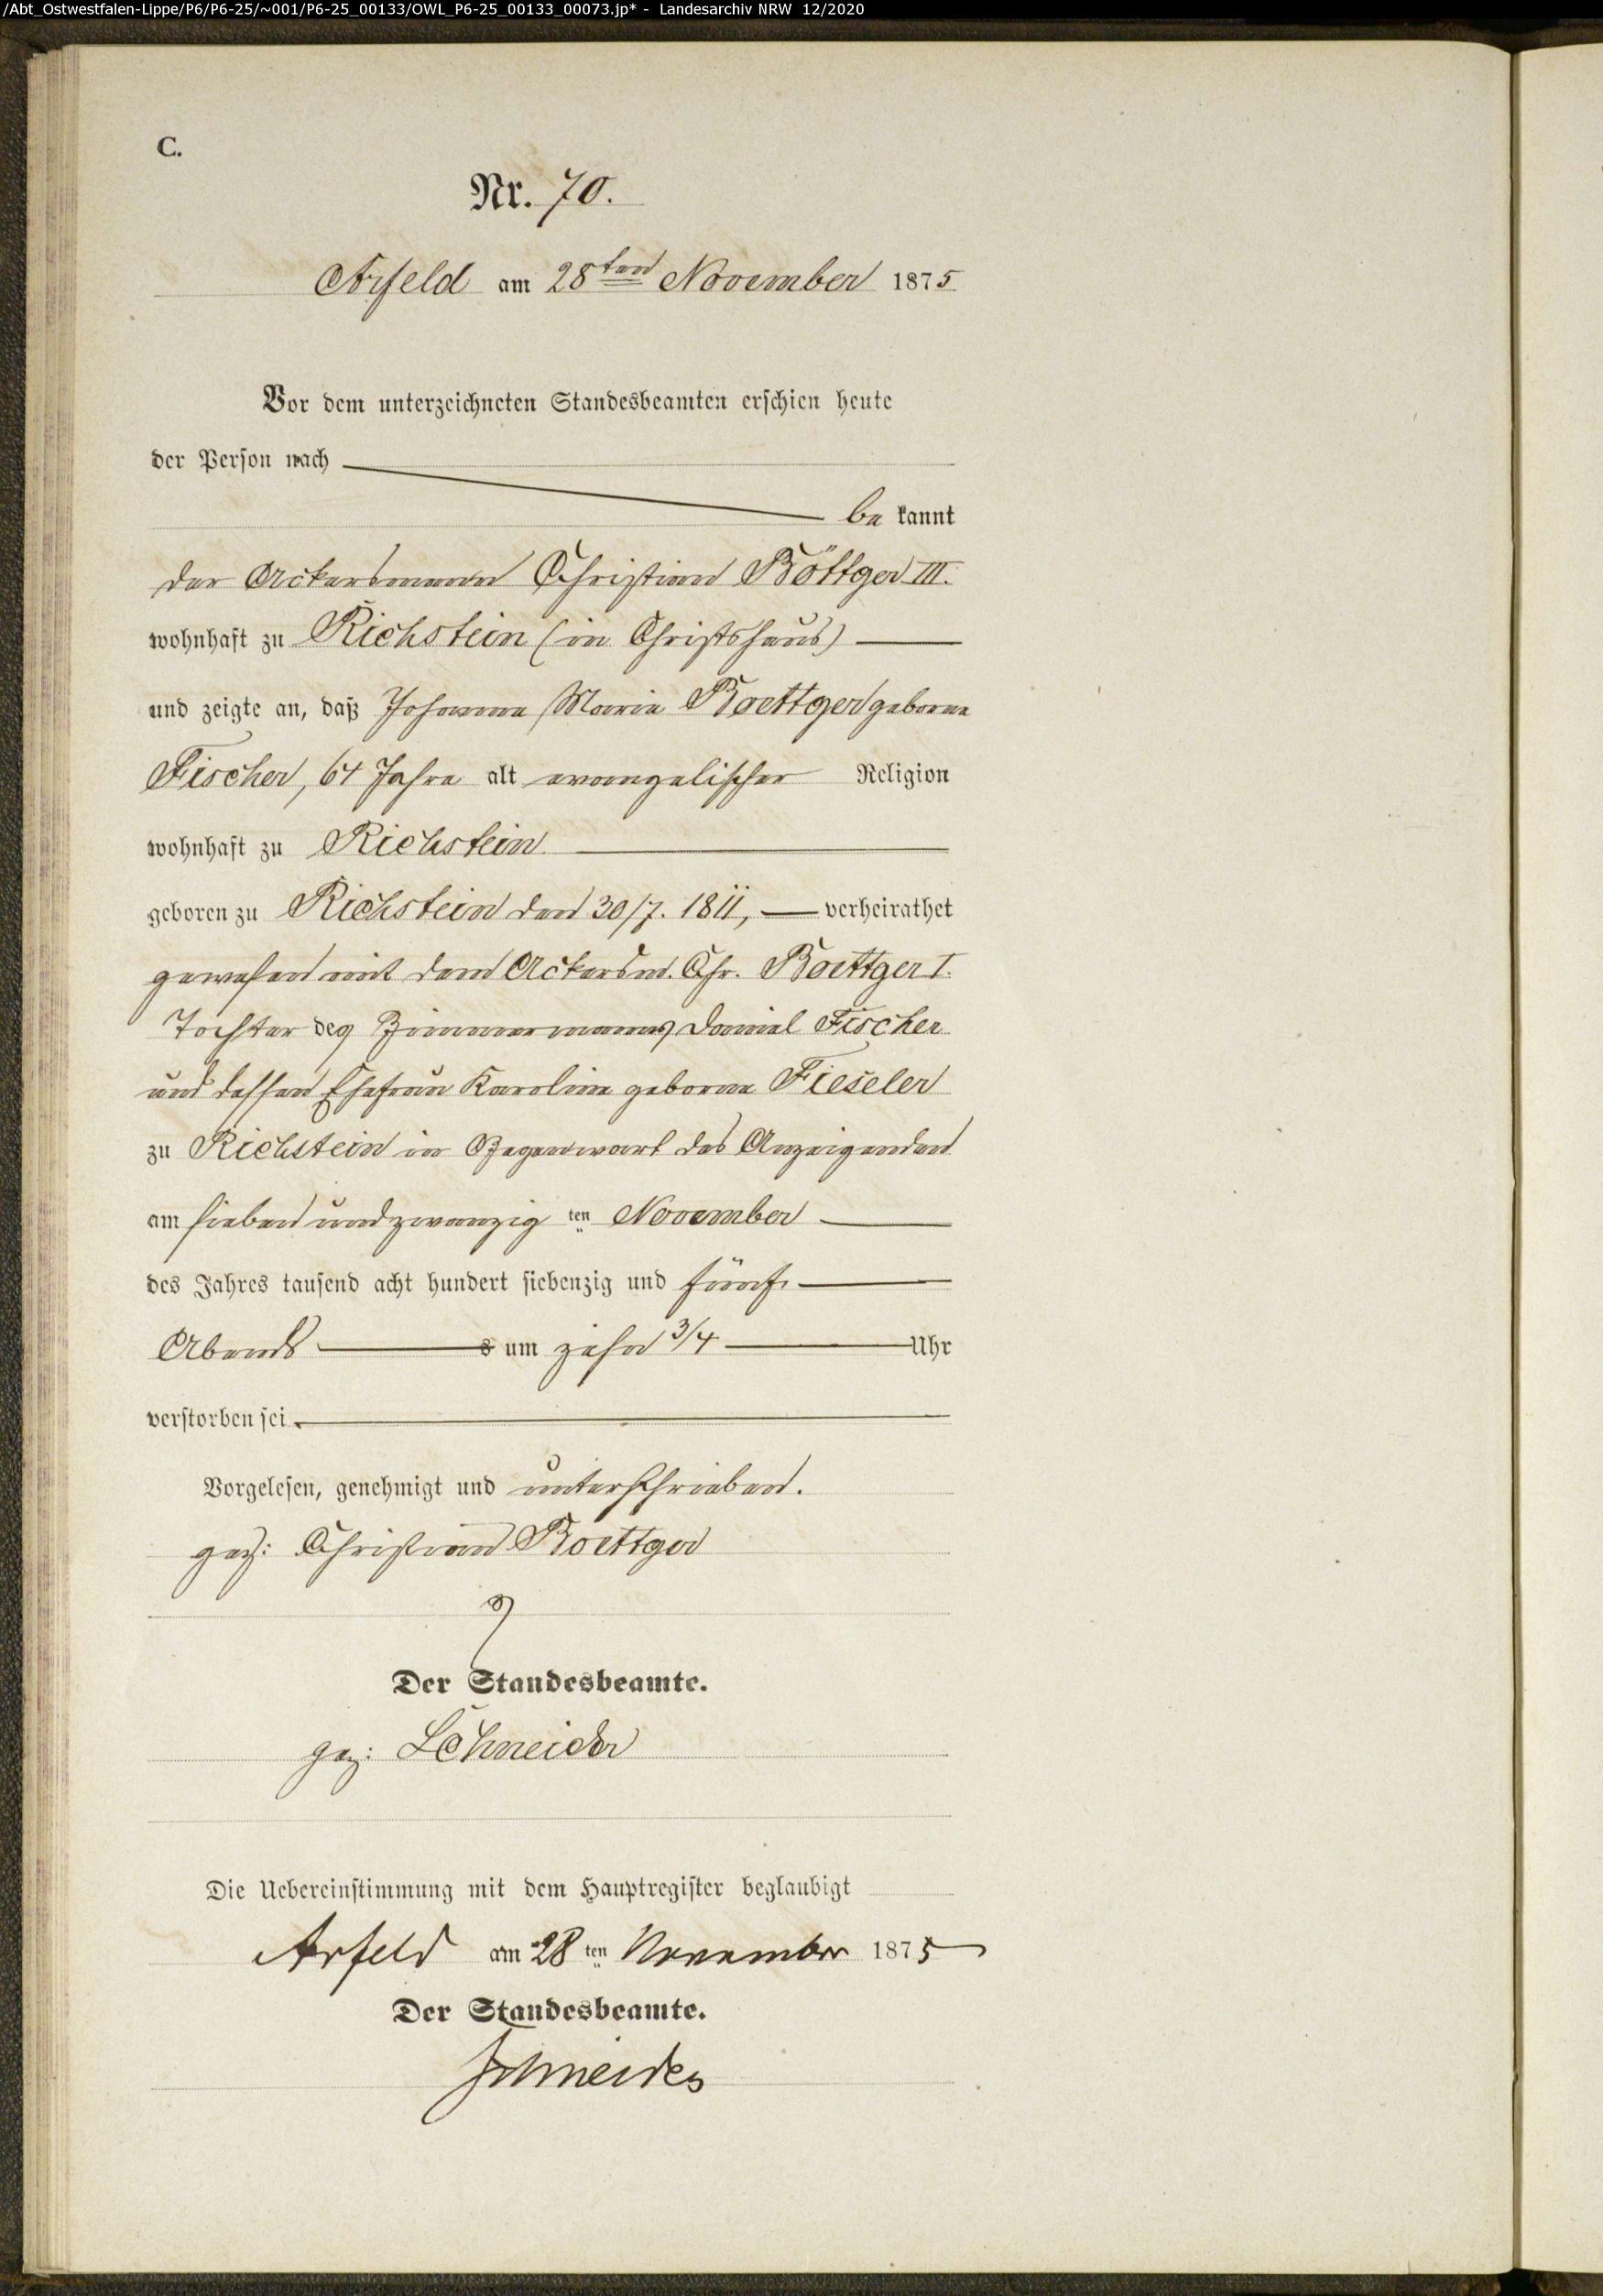 /Abt_Ostwestfalen-Lippe/P6/P6-25/~001/P6-25_00133/OWL_P6-25_00133_00073.jp* - Landesarchiv NRW 12/2020
C.
Nr. 70.
Arfeld am 28ten November 1875
Vor dem unterzeichneten Standesbeamten erschien heute
der Person nach
be kannt
der Ackersmann Christian Böttger III.
wohnhaft zu Richstein (in Christshaus)
und zeigte an, daß Johanne Marie Boettger geborne
Fischer, 64 Jahre alt evangelischer Religion
wohnhaft zu Richstein
geboren zu Richstein den 30/7. 1811, verheirathet
gewesen mit dem Ackersm. Chr. Boettger I.
Tochter des Zimmermanns Daniel Fischer
und dessen Ehefrau Karoline geborne Fieseler
zu Richstein in Gegenwart des Anzeigenden
am sieben und zwanzig ten November
des Jahres tausend acht hundert siebenzig und fünf
Abends s um zehn 3/4 Uhr
verstorben sei.
Vorgelesen, genehmigt und unterschrieben.
gez: Christian Boettger
Der Standesbeamte.
gez: Schneider
Die Uebereinstimmung mit dem Hauptregister beglaubigt
Arfeld am 28 ten November 1875
Der Standesbeamte.
Schneider